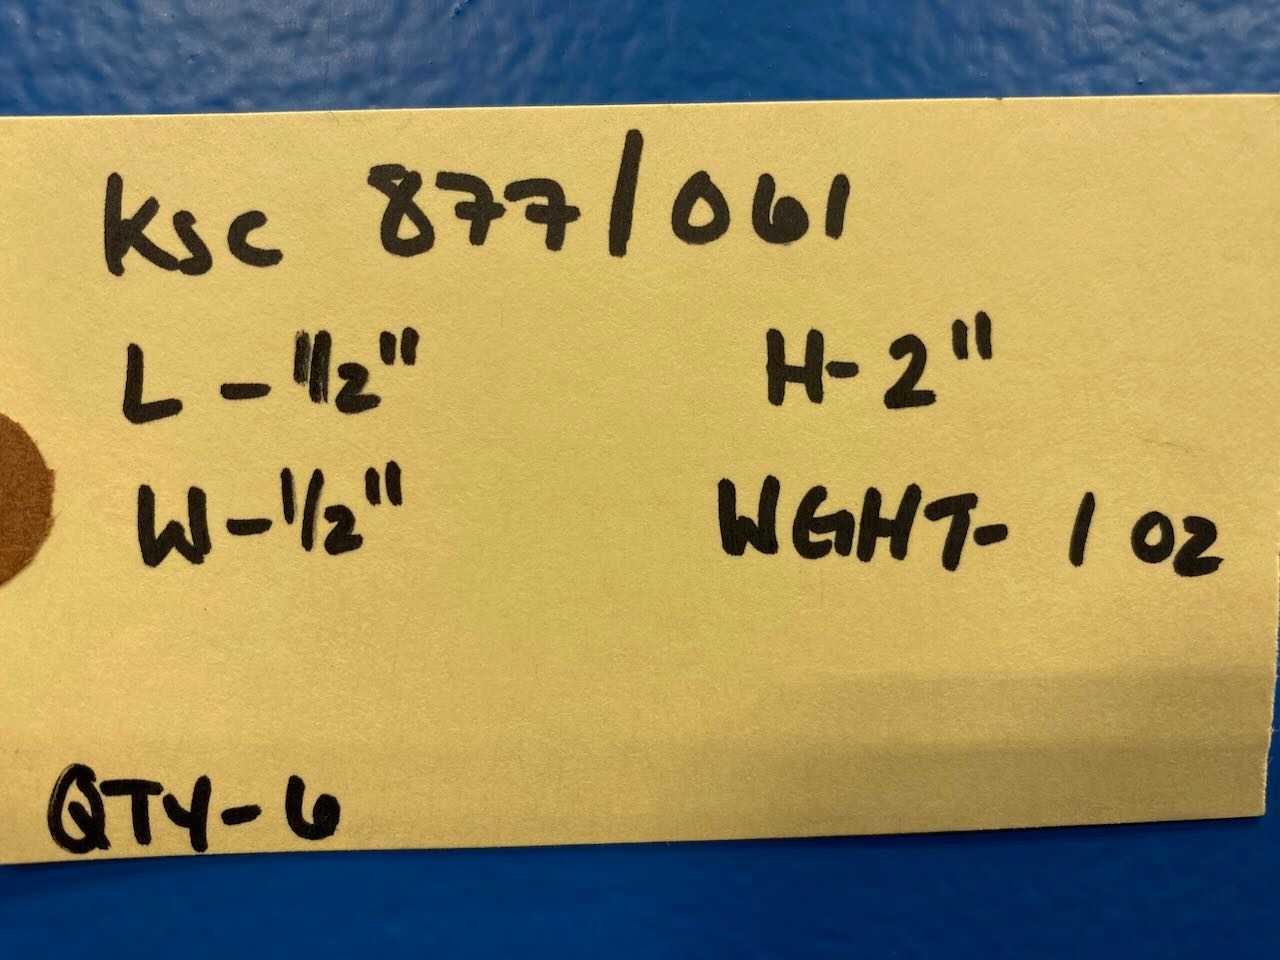 KSC 877/061
L - 1/2" H- 2"
W - 1/2" WGHT- 1 OZ
QTY- 6